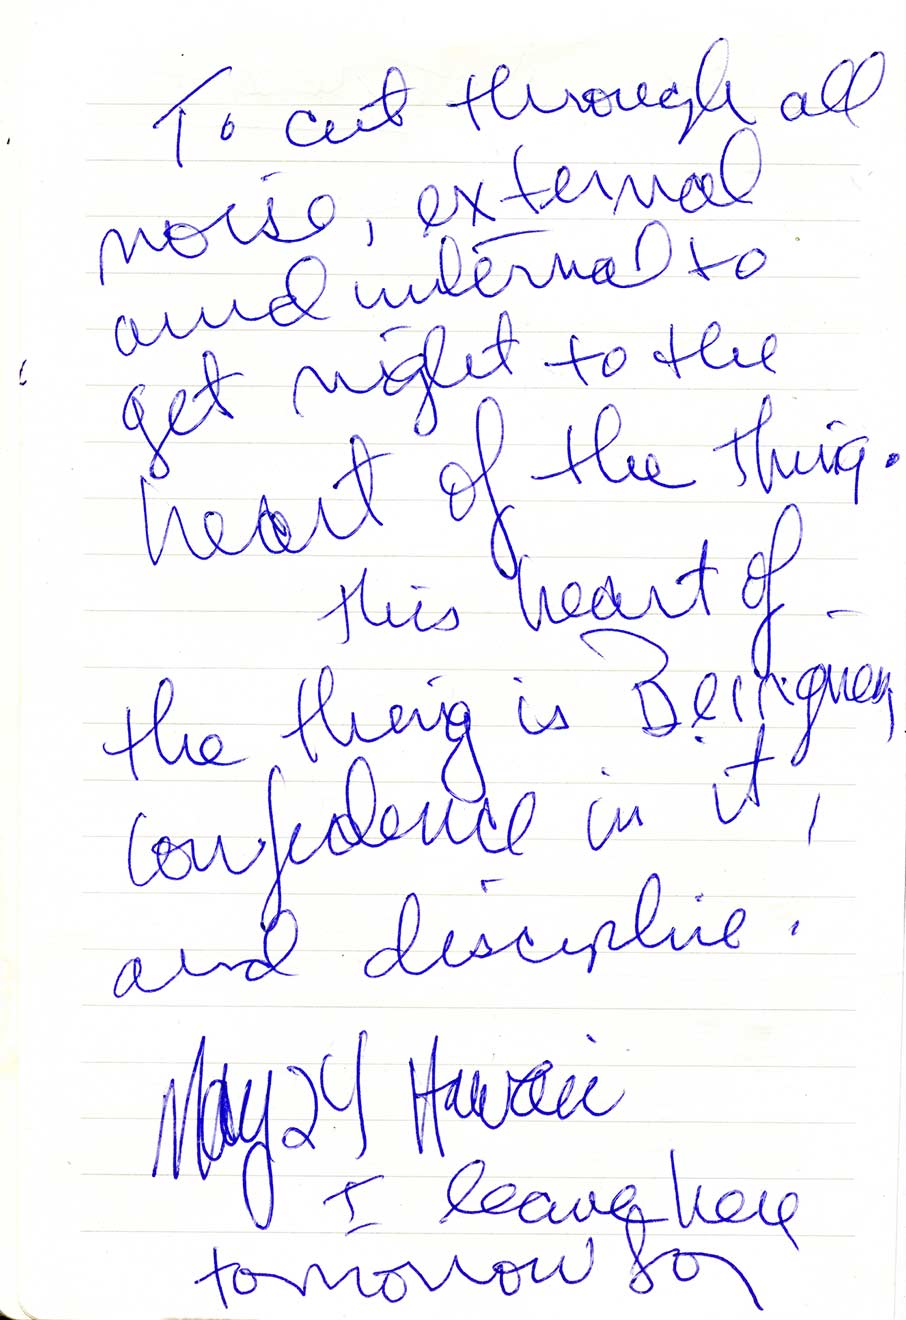 To cut through all
noise, external
and internal to
get right to the
heart of the thing.
this heart of
the thing is
confidence in it,
and discipline.
May 24 Hawaii
I leave here
tomorrow for